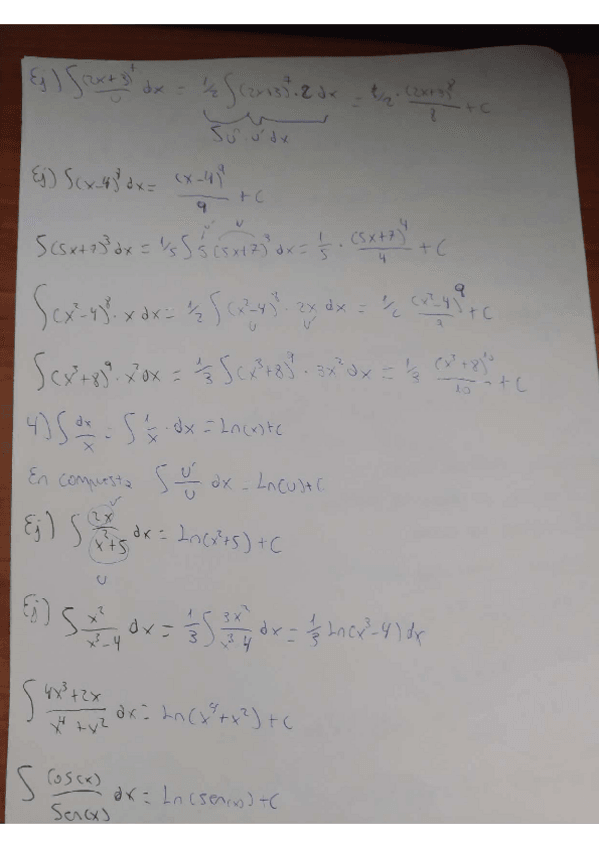 Ej) ∫(2x+3)⁷ dx = 1/2 ∫(2x+3)⁷ · 2 dx = 1/2 · (2x+3)⁸/2 + C
u
∫u⁷ · u' dx
Ej) ∫(x-4)⁸ dx = (x-4)⁹/9 + C
∫(5x+7)³ dx = 1/5 ∫ 5 (5x+7)³ dx = 1/5 · (5x+7)⁴/4 + C
∫(x²-4)⁸ · x dx = 1/2 ∫(x²-4)⁸ · 2x dx = 1/2 (x²-4)⁹/9 + C
u u'
∫(x³+8)⁹ · x² dx = 1/3 ∫(x³+8)⁹ · 3x² dx = 1/3 (x³+8)¹⁰/10 + C
4) ∫ dx/x = ∫ 1/x · dx = Ln(x)+C
En compuesta ∫ u'/u dx = Ln(u)+C
Ej) ∫ 2x/x²+5 dx = Ln(x²+5) + C
u
Ej) ∫ x²/x³-4 dx = 1/3 ∫ 3x²/x³-4 dx = 1/3 Ln(x³-4) dx
∫ 4x³+2x/x⁴+x² dx = Ln(x⁴+x²) + C
∫ Cos(x)/Sen(x) dx = Ln(sen(x)) + C